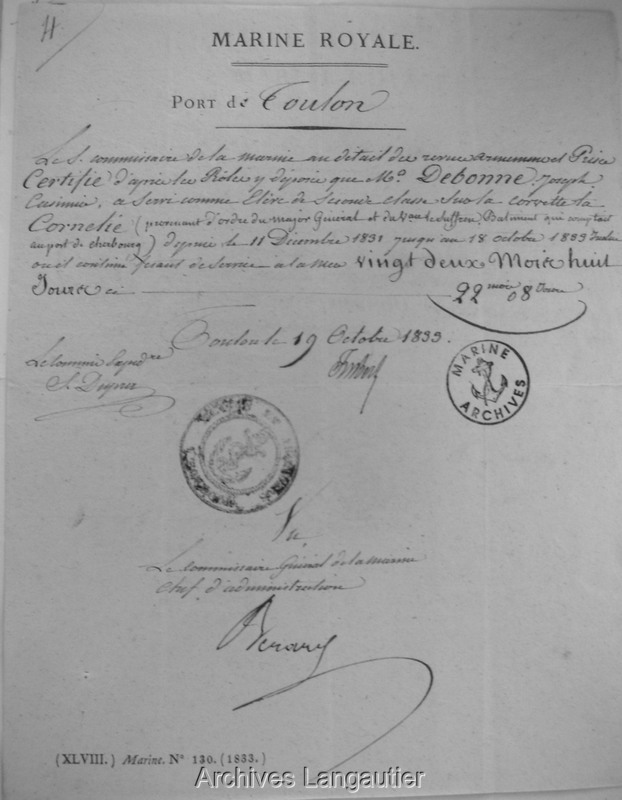 MARINE ROYALE.
PORT de Toulon
Le S. commissaire de la marine au detail des revues armemens et Prises
Certifie d'après les Rôles y déposés que Mr. Debonne, Joseph
Casimir, a Servi comme Elève de Seconde classe Sur la corvette la
Cornelie (provenant d'ordre du major Général et du Vau le Suffren, Batiment qui comptait
au port de cherbourg) depuis le 11 Decembre 1831 jusqu'au 18 octobre 1833
ou il continue faisant de Service a la mer vingt deux Mois huit
Jours ci 22 mois 08 Jours
Toulon le 19 Octobre 1833.
Le commis
MARINE
ARCHIVES
Vu
Le Commissaire Général de la marine
chef d'administration
Berard
(XLVIII.) Marine. N° 130. (1833.)
Archives Langautier